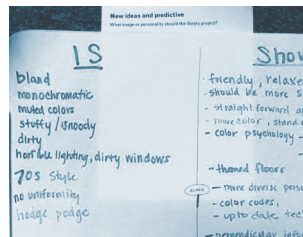 New ideas and predictive
What image or personality should the library project?
IS
bland
monochromatic
muted colors
stuffy / snoody
dirty
horrible lighting, dirty windows
70s style
no uniformity
hodge podge
Shou
- friendly, relaxe
- should be more s
- straight forward a
- more color, stand o
- color psychology -
- themed floors
- more diverse pers
- color codes,
- up to date tec